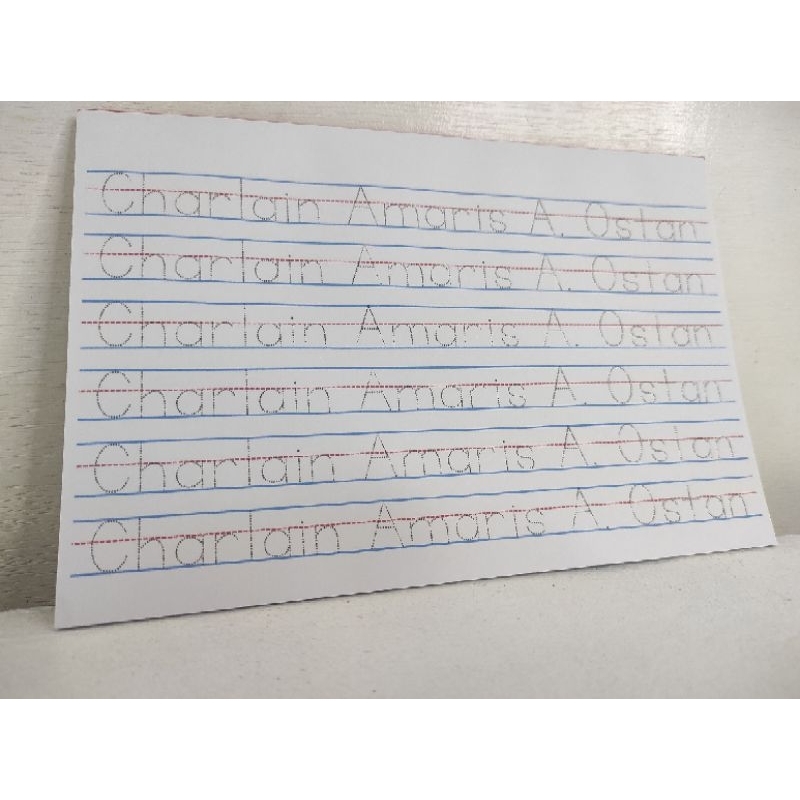 Charlain Amaris A. Ostan
Charlain Amaris A. Ostan
Charlain Amaris A. Ostan
Charlain Amaris A. Ostan
Charlain Amaris A. Ostan
Charlain Amaris A. Ostan